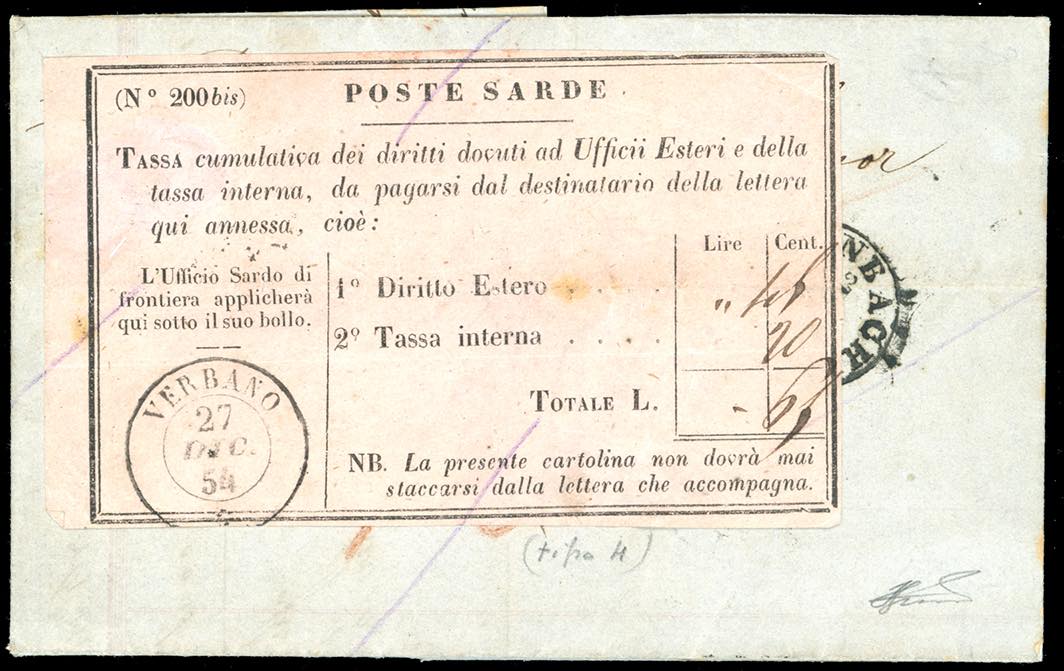 (N° 200bis) POSTE SARDE
TASSA cumulativa dei diritti dovuti ad Ufficii Esteri e della
tassa interna, da pagarsi dal destinatario della lettera
qui annessa, cioè:
Lire Cent.
L'Ufficio Sardo di
frontiera applicherà
qui sotto il suo bollo.
1° Diritto Estero . . . .
2° Tassa interna . . . . 20
TOTALE L.
NB. La presente cartolina non dovrà mai
staccarsi dalla lettera che accompagna.
VERBANO
27
DIC.
54
NBACH
(tipo 4)